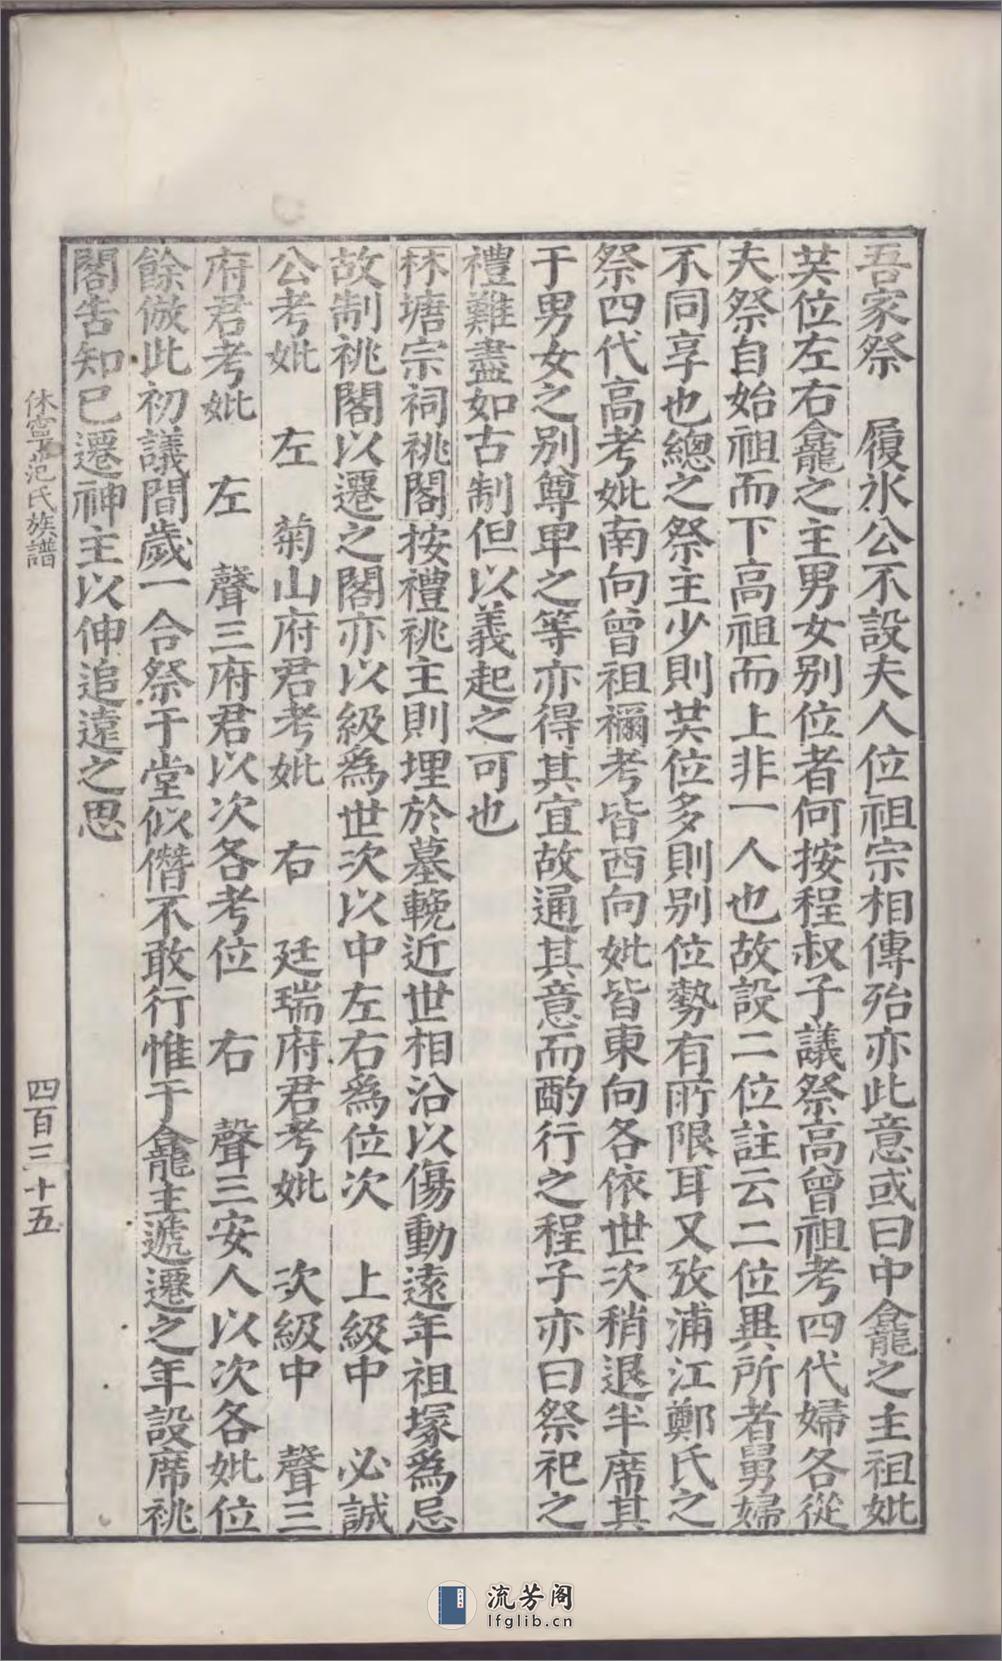 吾家祭　履氷公不設夫人位祖宗相傳殆亦此意或曰中龕之主祖妣
共位左右龕之主男女别位者何按程叔子議祭高曾祖考四代婦各從
夫祭自始祖而下高祖而上非一人也故設二位註云二位異所者舅婦
不同享也總之祭主少則共位多則别位勢有所限耳又攷浦江鄭氏之
祭四代高考妣南向曾祖禰考皆西向妣皆東向各依世次稍退半席其
于男女之别尊卑之等亦得其宜故通其意而酌行之程子亦曰祭祀之
禮難盡如古制但以義起之可也
林塘宗祠祧閣按禮祧主則埋於墓輓近世相沿以傷動遠年祖塚為忌
故制祧閣以遷之閣亦以級為世次以中左右為位次　上級中　必誠
公考妣　左　菊山府君考妣　右　廷瑞府君考妣　次級中　聲三
府君考妣　左　聲三府君以次各考位　右　聲三安人以次各妣位
餘倣此初議間歲一合祭于堂似僭不敢行惟于龕主遞遷之年設席祧
閣告知已遷神主以伸追遠之思
休寧范氏族譜
四百三十五
流芳阁
lfglib.cn